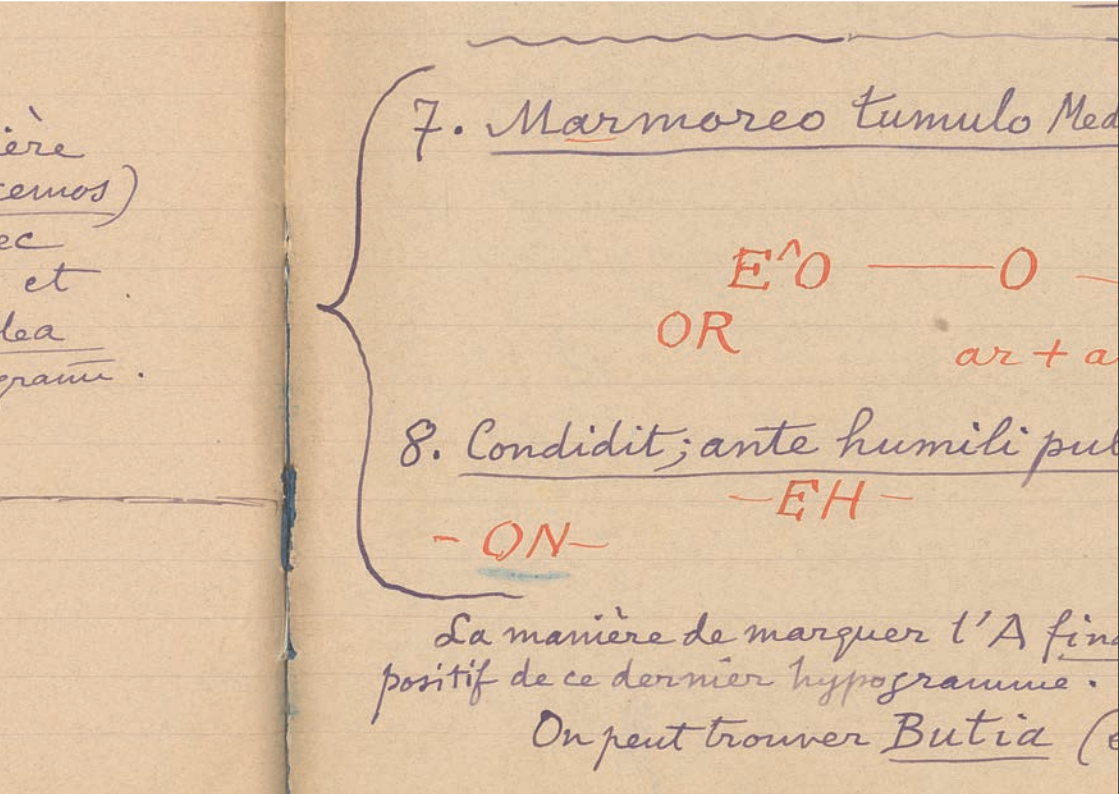 ière
cemos)
ec
et
lea
gramī .
7. Marmoreo tumulo Med
E^O — O —
OR
ar + a
8. Condidit; ante humili pul
- EH -
- ON -
La manière de marquer l'A fina
positif de ce dernier hypogramme.
On peut trouver Butia (e